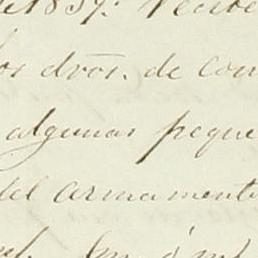 de 1839. Recibe
los dros. de con
algunas peque
del armamento